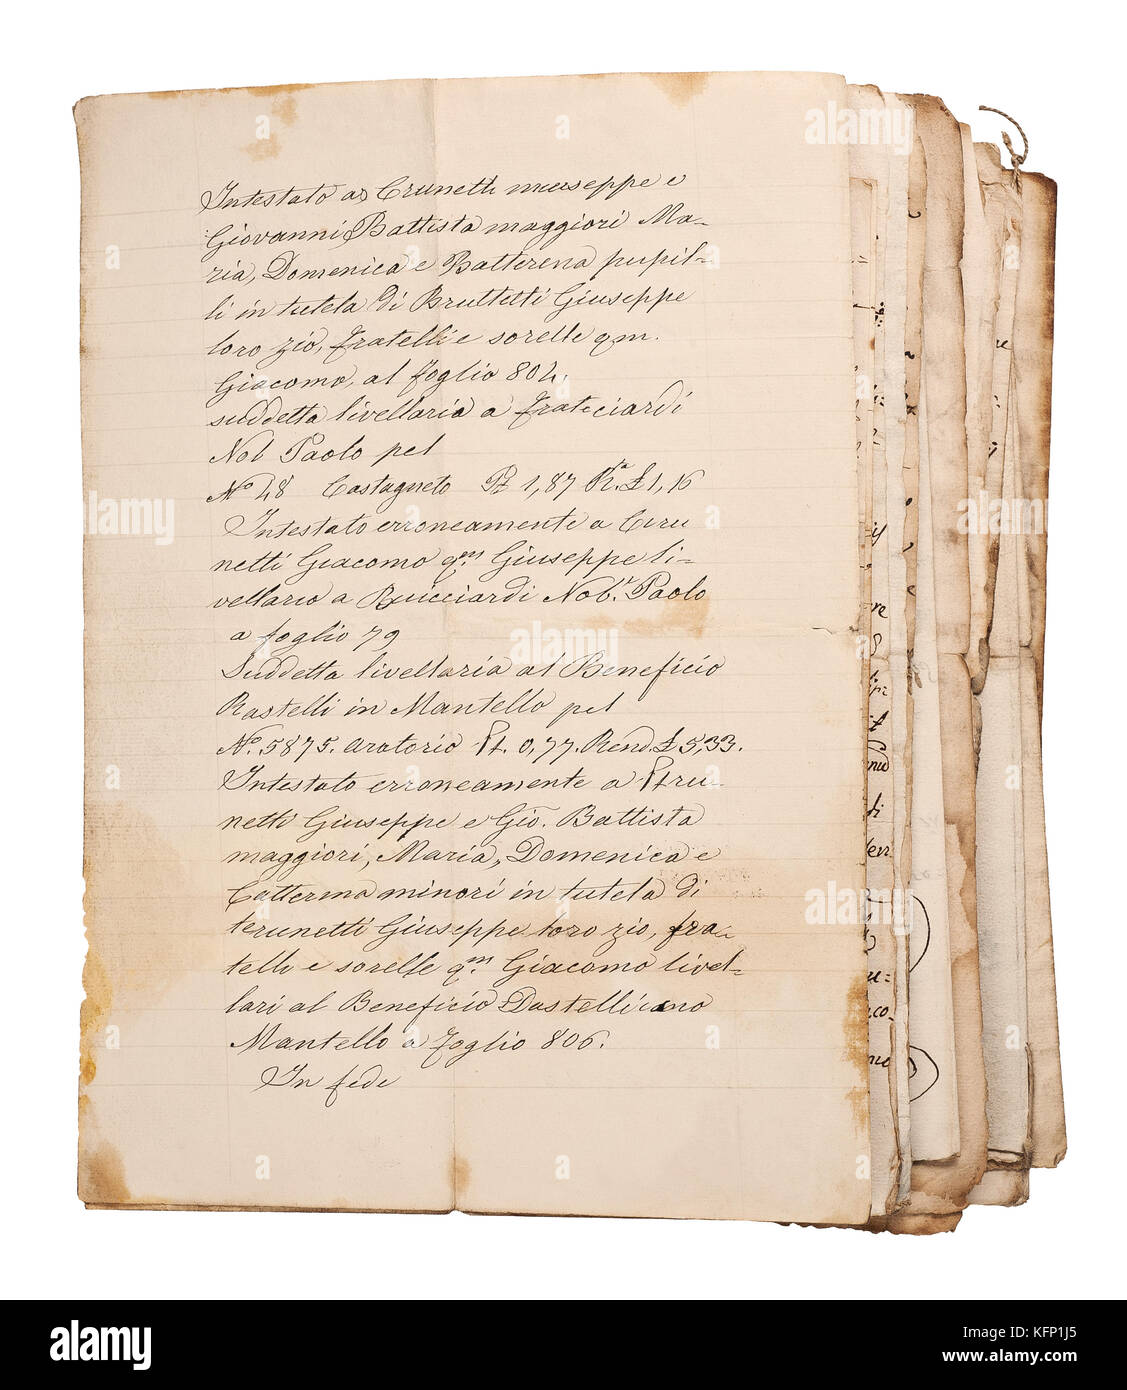 Intestato as Crunetti miuseppe e
Giovanni Battista maggiori Ma-
ria, Domenica e Batterena pupil-
li in tutela di Bruttetti Giuseppe
loro zio, fratelli e sorelle qm.
Giacomo, al foglio 804.
suddetta livellaria a Frateciardi
Nob Paolo pel
No 48 Castagneto Pt 1,87 Ra. £ 1,16
Intestato erroneamente a Ceru
netti Giacomo qm Giuseppe li-
vellario a Ruicciardi Nob.r Paolo
a foglio 79
Suddetta livellaria al Beneficio
Rastelli in Mantello pel
No. 5875. aratorio Pt. 0,77. Rend. £ 5,33.
Intestato erroneamente a Ptru-
netti Giuseppe e Gio. Battista
maggiori, Maria, Domenica e
Catterina minori in tutela di
terunetti Giuseppe loro zio, fra-
telli e sorelle qm Giacomo livel-
lari al Beneficio Dastelli
Mantello a foglio 806.
In fede
alamy
alamy
Image ID: KFP1J5
www.alamy.com